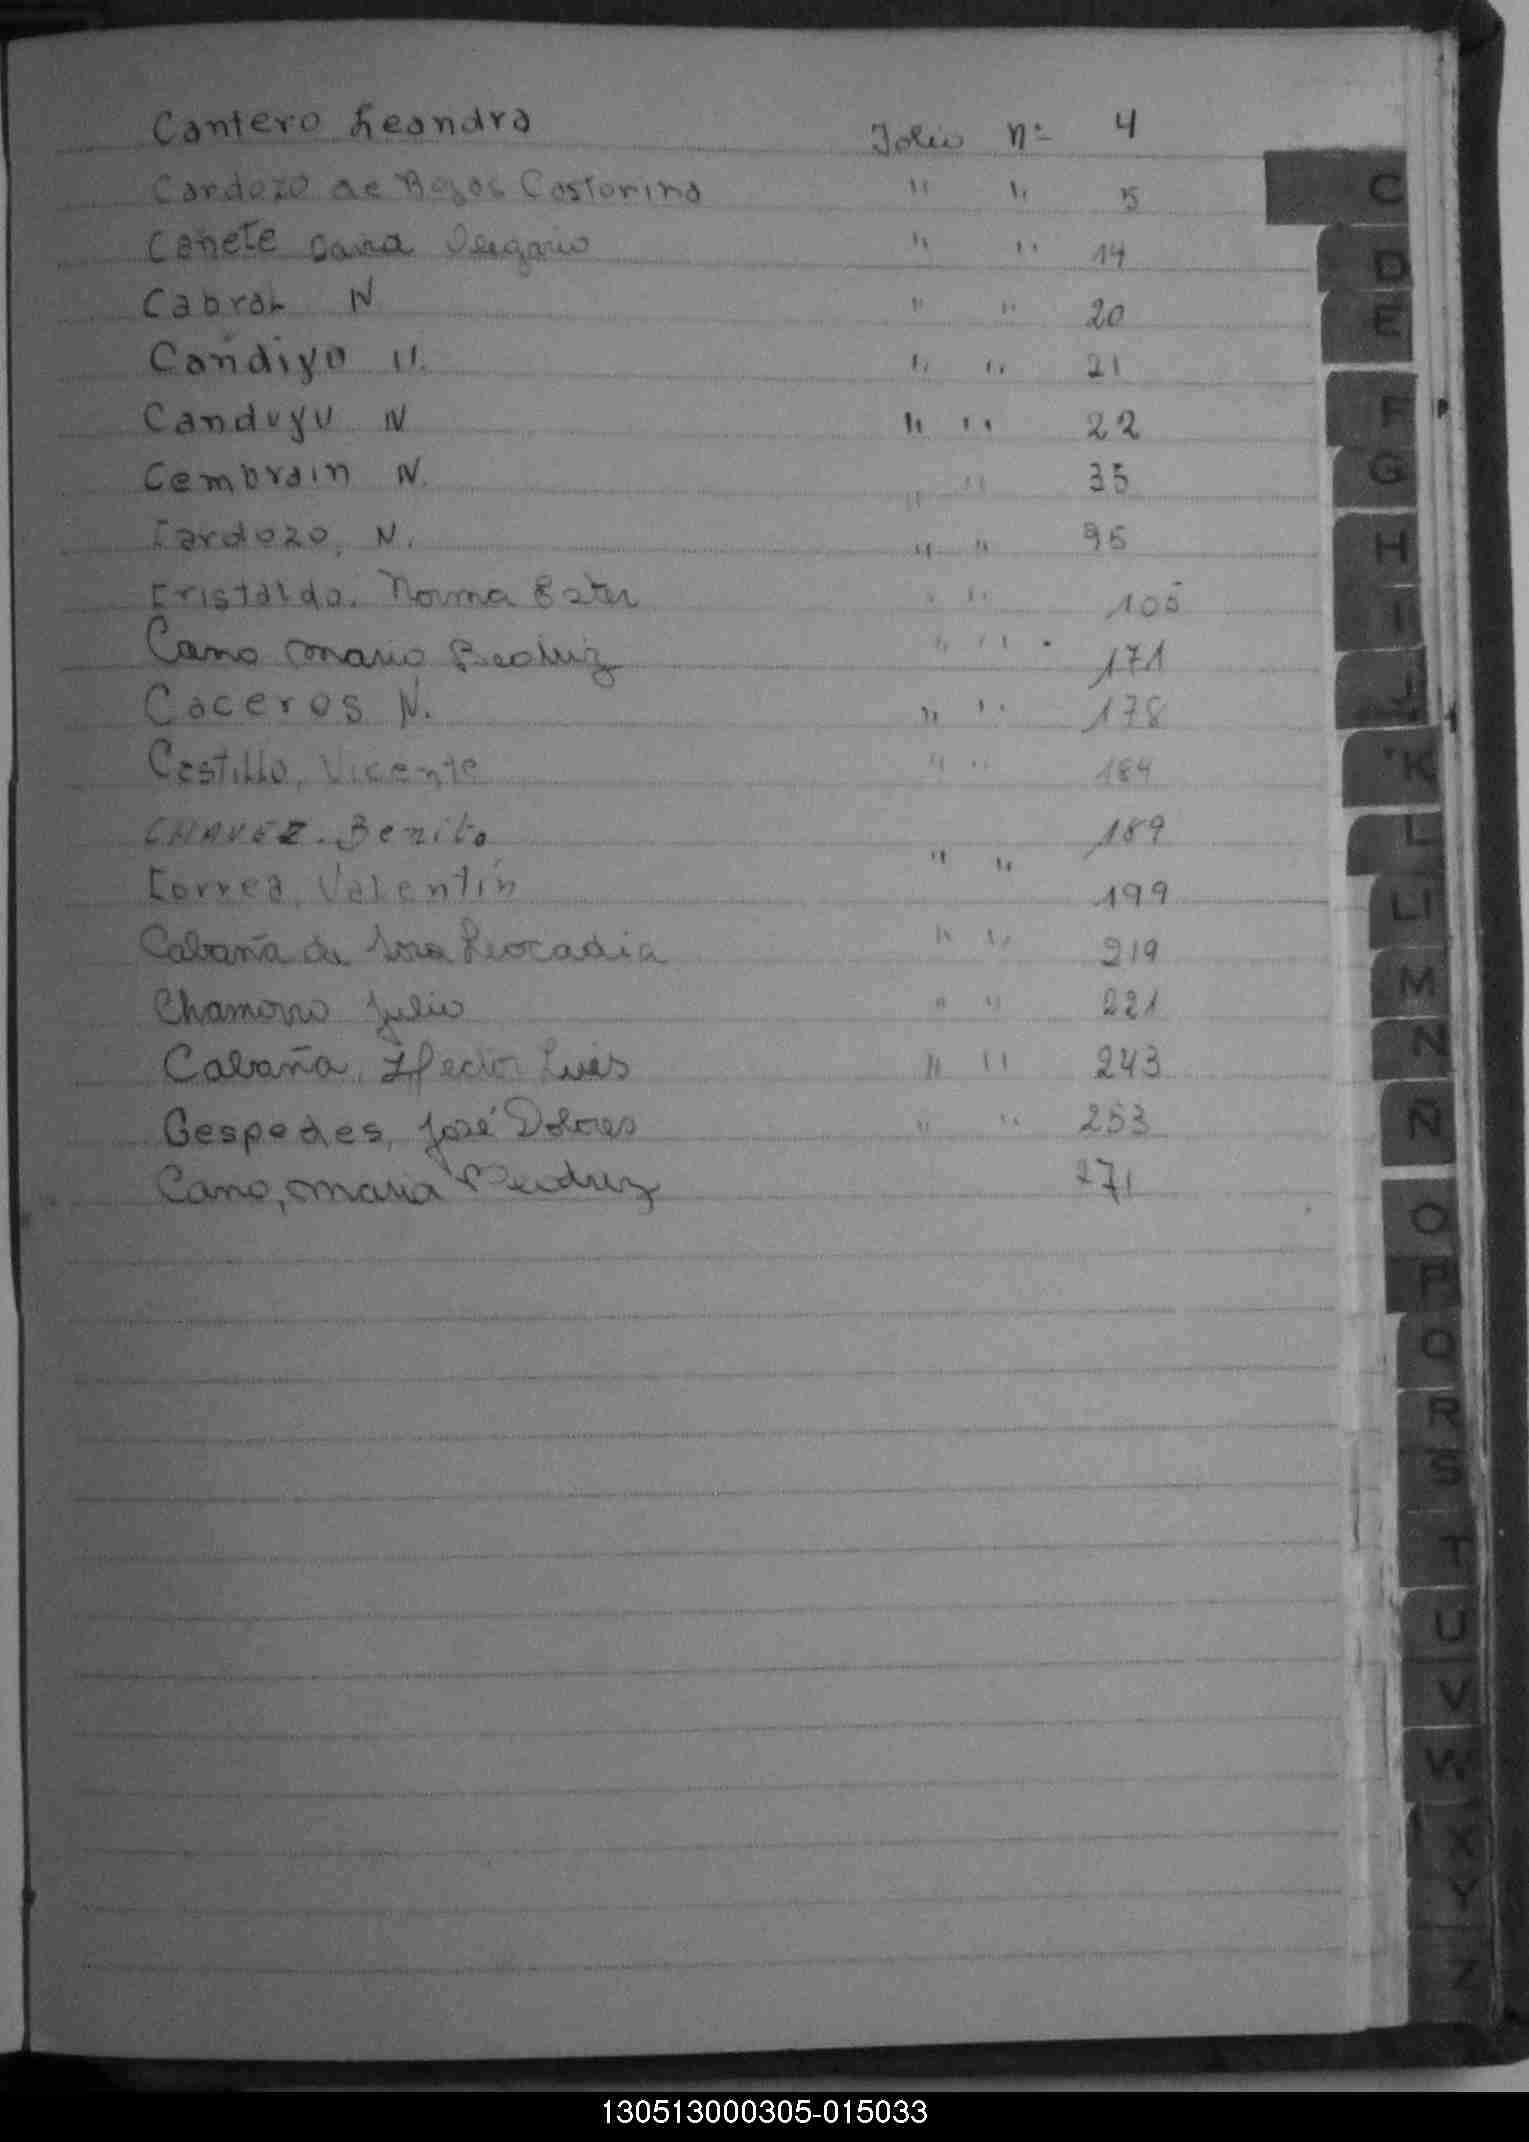 Cantero Leandra Folio Nº 4
Cardozo de Rojas Castorina " " 5
Cañete Olegario " " 14
Cabral N " " 20
Candiyo N. " " 21
Canduyu N " " 22
Cembrain N. " " 35
Cardozo, N. " " 95
Cristaldo, Norma Ester " " 105
Cano Maria Beatriz " " 171
Caceres N. " " 178
Castillo, Vicente " " 184
CHAVEZ. Benito " " 189
Correa, Valentín 199
Cabaña de Leocadia " " 219
Chamorro Julio " " 221
Cabaña, Hector Luis " " 243
Cespedes, José Dolores " " 253
Cano, Maria Beatriz 271
C
D
E
F
G
H
I
J
K
L
Ll
M
N
Ñ
O
P
Q
R
S
T
U
V
W
X
Y
Z
130513000305-015033